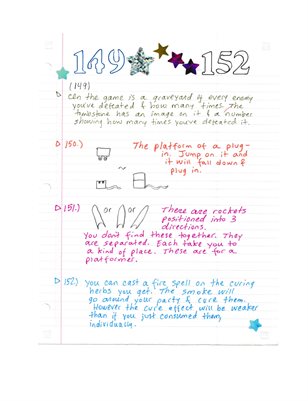 149 152
(149)
On the game is a graveyard of every enemy
you've defeated & how many times. The
tombstone has an image on it & a number
showing how many times you've defeated it.
150.) The platform of a plug-
in. Jump on it and
it will fall down &
plug in.
151.) or or These are rockets
positioned into 3
directions.
You don't find these together. They
are separated. Each take you to
a kind of place. These are for a
platformer.
152.) you can cast a fire spell on the curing
herbs you get. The smoke will
go around your party & cure them.
However the cure effect will be weaker
than if you just consumed them,
individually.